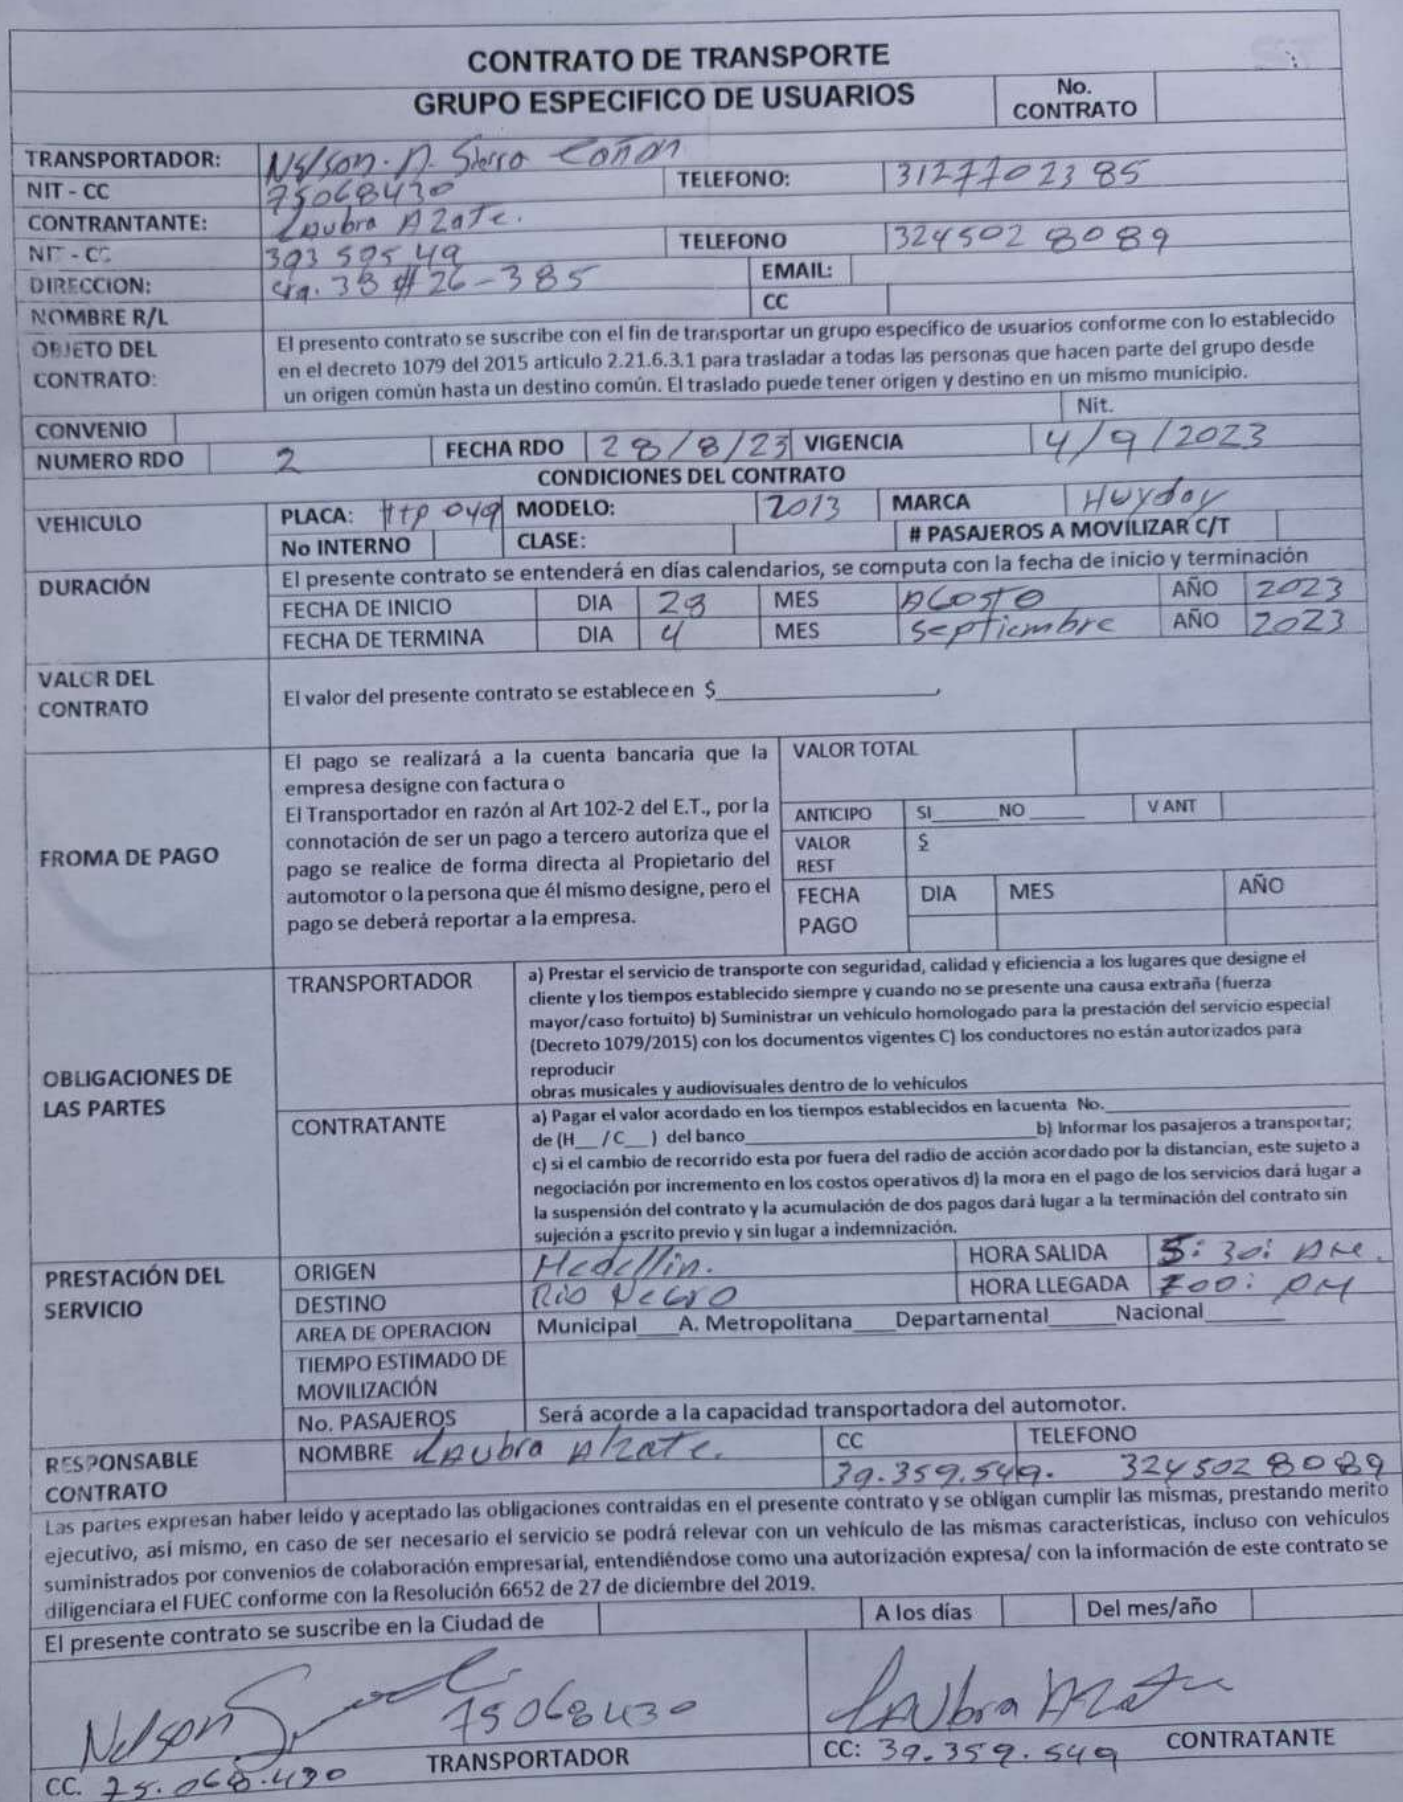 CONTRATO DE TRANSPORTE
GRUPO ESPECIFICO DE USUARIOS No. CONTRATO
TRANSPORTADOR: Nelson. A. Sierra
NIT - CC 75068430 TELEFONO: 3127702385
CONTRANTANTE: Laubra Alzate.
NIT - CC 39359549 TELEFONO 3245028089
DIRECCION: 38 # 26-385 EMAIL:
NOMBRE R/L CC
OBJETO DEL CONTRATO: El presento contrato se suscribe con el fin de transportar un grupo específico de usuarios conforme con lo establecido
en el decreto 1079 del 2015 articulo 2.21.6.3.1 para trasladar a todas las personas que hacen parte del grupo desde
un origen común hasta un destino común. El traslado puede tener origen y destino en un mismo municipio.
CONVENIO Nit.
NUMERO RDO 2 FECHA RDO 28/8/23 VIGENCIA 4/9/2023
CONDICIONES DEL CONTRATO
VEHICULO PLACA: HTP 049 MODELO: 2013 MARCA
No INTERNO CLASE: # PASAJEROS A MOVILIZAR C/T
DURACIÓN El presente contrato se entenderá en días calendarios, se computa con la fecha de inicio y terminación
FECHA DE INICIO DIA 28 MES AGOSTO AÑO 2023
FECHA DE TERMINA DIA 4 MES Septiembre AÑO 2023
VALOR DEL CONTRATO El valor del presente contrato se establece en $
FROMA DE PAGO
El pago se realizará a la cuenta bancaria que la
empresa designe con factura o
El Transportador en razón al Art 102-2 del E.T., por la
connotación de ser un pago a tercero autoriza que el
pago se realice de forma directa al Propietario del
automotor o la persona que él mismo designe, pero el
pago se deberá reportar a la empresa.
VALOR TOTAL
ANTICIPO SI____ NO____ V ANT
VALOR REST $
FECHA PAGO DIA MES AÑO
OBLIGACIONES DE LAS PARTES
TRANSPORTADOR
a) Prestar el servicio de transporte con seguridad, calidad y eficiencia a los lugares que designe el
cliente y los tiempos establecido siempre y cuando no se presente una causa extraña (fuerza
mayor/caso fortuito) b) Suministrar un vehículo homologado para la prestación del servicio especial
(Decreto 1079/2015) con los documentos vigentes C) los conductores no están autorizados para
reproducir
obras musicales y audiovisuales dentro de lo vehículos
CONTRATANTE
a) Pagar el valor acordado en los tiempos establecidos en la cuenta No.____
de (H__ /C__ ) del banco____ b) Informar los pasajeros a transportar;
c) si el cambio de recorrido esta por fuera del radio de acción acordado por la distancian, este sujeto a
negociación por incremento en los costos operativos d) la mora en el pago de los servicios dará lugar a
la suspensión del contrato y la acumulación de dos pagos dará lugar a la terminación del contrato sin
sujeción a escrito previo y sin lugar a indemnización.
PRESTACIÓN DEL SERVICIO
ORIGEN Medellin. HORA SALIDA 5:30: AM.
DESTINO Rio Negro HORA LLEGADA 700: PM
AREA DE OPERACION Municipal____A. Metropolitana____Departamental____Nacional____
TIEMPO ESTIMADO DE MOVILIZACIÓN
No. PASAJEROS Será acorde a la capacidad transportadora del automotor.
RESPONSABLE CONTRATO
NOMBRE Laubra Alzate. CC TELEFONO
39.359.549. 3245028089
Las partes expresan haber leído y aceptado las obligaciones contraidas en el presente contrato y se obligan cumplir las mismas, prestando merito
ejecutivo, así mismo, en caso de ser necesario el servicio se podrá relevar con un vehículo de las mismas características, incluso con vehículos
suministrados por convenios de colaboración empresarial, entendiéndose como una autorización expresa/ con la información de este contrato se
diligenciara el FUEC conforme con la Resolución 6652 de 27 de diciembre del 2019.
El presente contrato se suscribe en la Ciudad de A los días Del mes/año
Nelson 75068430
Laubra Alzate
CC. 75.068.430 TRANSPORTADOR
CC: 39.359.549 CONTRATANTE